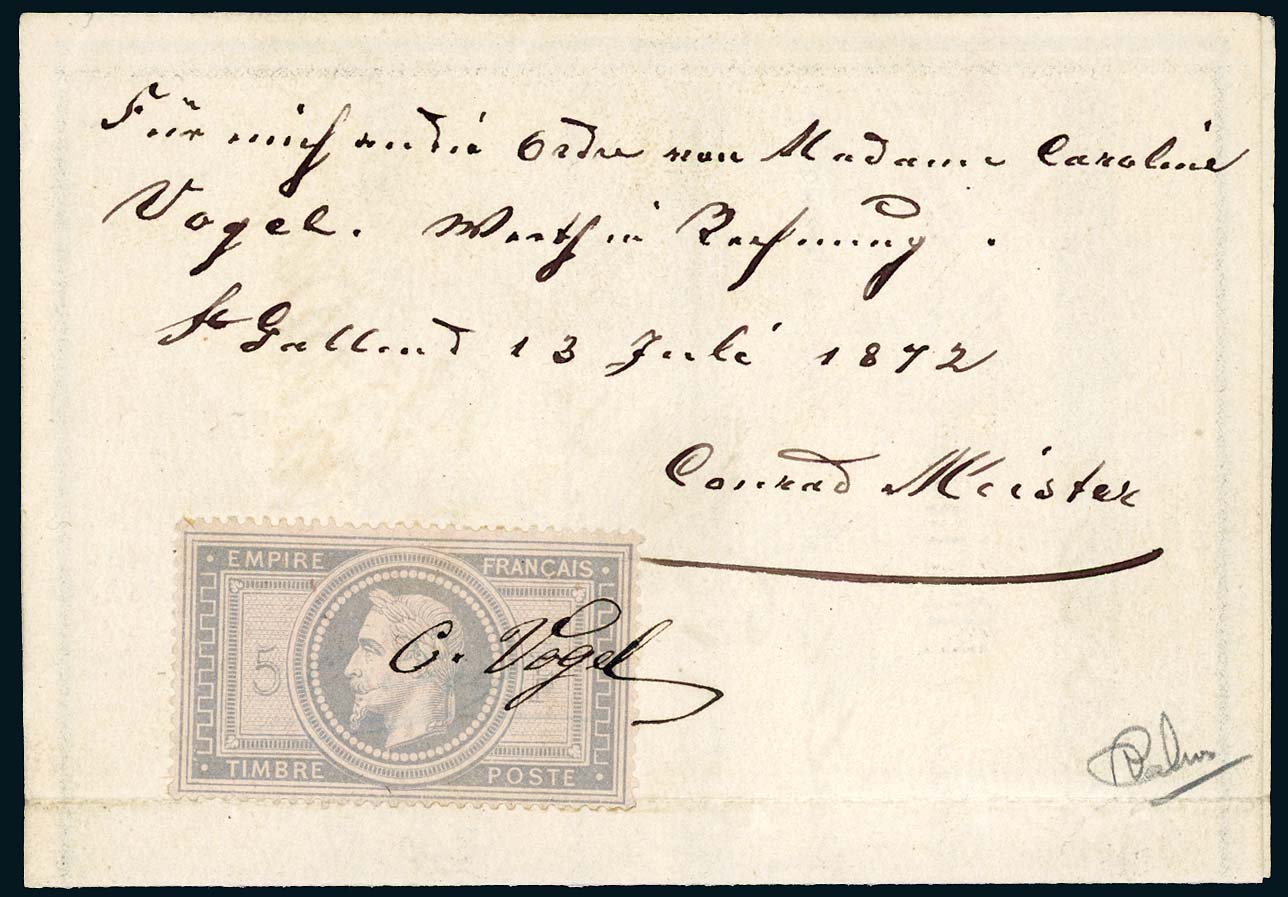 Für mich an die Ordre von Madame Caroline
Vogel. Werth in Rechnung.
St Gallen d 13 Juli 1872
Conrad Meister
EMPIRE FRANÇAIS
5
C. Vogel
TIMBRE POSTE